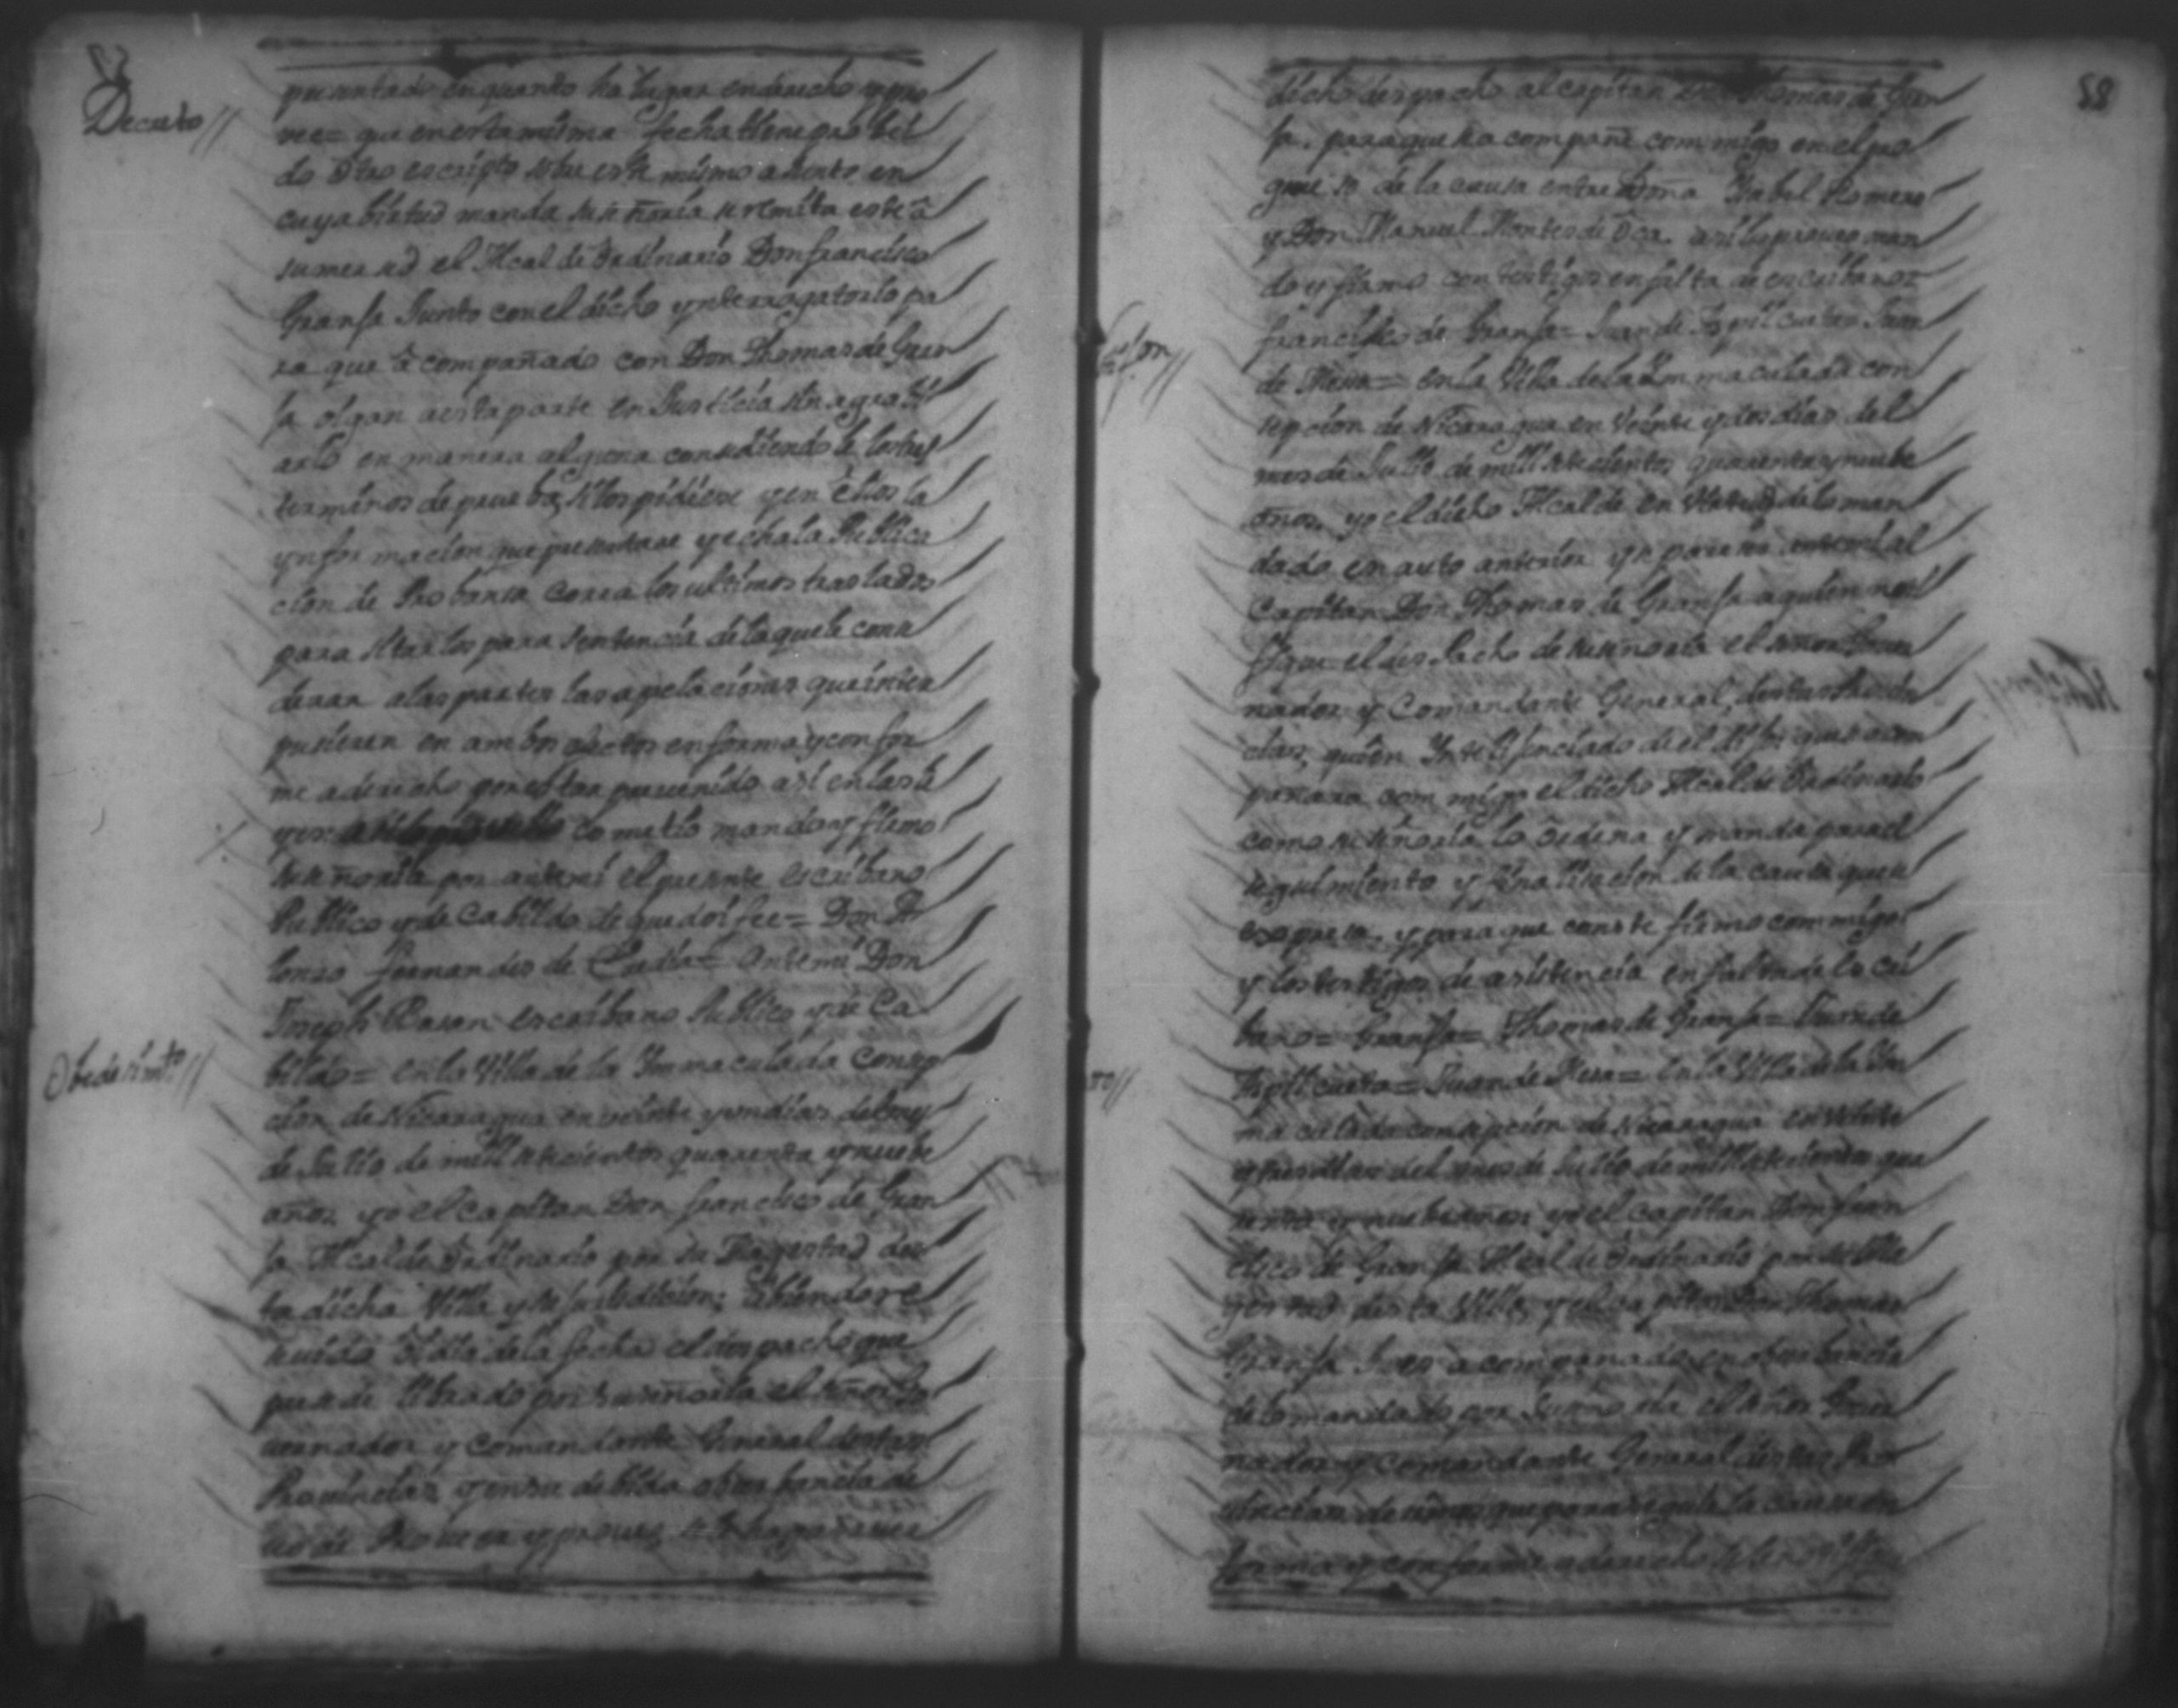 Decreto//
presentado en quanto ha lugar en derecho y pro
vee= que en esta misma fecha tiene probei
do otro escripto sobre este mismo asunto en
cuya birtud manda su señoria se remita este â
su merced el Alcalde ordinario Don francisco
Granja Junto con el dicho ynterrogatorio pa
ra que âcompañado con Don Thomas de Gran
ja oigan a esta parte en Justicia sin agravi
arlo en manera alguna consediendole los tres
terminos de prueba, si los pidiere y en ellos la
ynformacion que presentare y echa la Publica
cion de Probansa corra los ultimos traslados
para sitarlos para sentencia de la que le conse
deran a las partes las apelaciones que inter
pusieren en ambos efectos en forma y confor
me a derecho por estar prevenido asi en las
y en como lo mando y firmo
su señoria por ante mi el presente escribano
Publico y de Cabildo de que doi fee= Don A
lonso fernandes de Eredia= Ante mi Don
Joseph Basan escribano Publico y de Ca
Obedesimto//
bildo= en la Villa de la Ynmaculada Consep
cion de Nicaragua en veinte y un dias del mes
de Julio de mill setecientos quarenta y nuebe
años yo el Capitan Don francisco de Gran
ja Alcalde ordinario por su Magestad des
ta dicha Villa y su jurisdicion; Abiendo re
sevido oi dia de la fecha el despacho que
presede librado por su señoria el señor Go
vernador y Comandante General destas
Provincias, y en su debida obserbancia de
vo de Probeer y probeo, se le haga saver
58
dicho despacho al capitan Don Thomas de Gran
ja. para que se acompañe commigo en el pro
greso de la causa entre Doña Isabel Romero
y Don Manuel Montes de Oca. asi lo proveo man
do y firmo con testigos en falta de escribanos=
francisco de Granja= Juan de Juan
de Mesa= en la Villa de la Ynmaculada con
sepcion de Nicaragua en veinte y dos dias del
mes de Julio de mill setecientos quarenta y nuebe
años. yo el dicho Alcalde en virtud de lo man
dado en auto anterior Capitan Don Thomas de Granja a quien no ti
fique el despacho de su señoria el señor Gover
nador y Comandante General destas Provin
cias, quien Ynteligenciado de el dijo que se acom
pañara com migo el dicho Alcalde Ordinario
como su señoria lo ordena y manda para el
seguimiento y finalisacion de la causa que se
expresa. y para que conste firmo commigo
y los testigos de asistencia en falta de Escri
bano= Granja= Thomas de Granja= Juan de
Juan de Mesa= En la Villa de la Yn
maculada consepcion de Nicaragua en veinte
y tres dias del mes de Julio de mill setecientos qua
renta y nuebe años; yo el capitan Don fran
cisco de Granja Alcalde Ordinario por su Ma
gestad desta Villa, y el capitan Don Thomas
Granja Jues acompañado en obserbancia
de lo mandado por su señoria el señor Gover
nador y Comandante General destas Pro
vincias que para seguir la causa en
forma y conforme a derecho